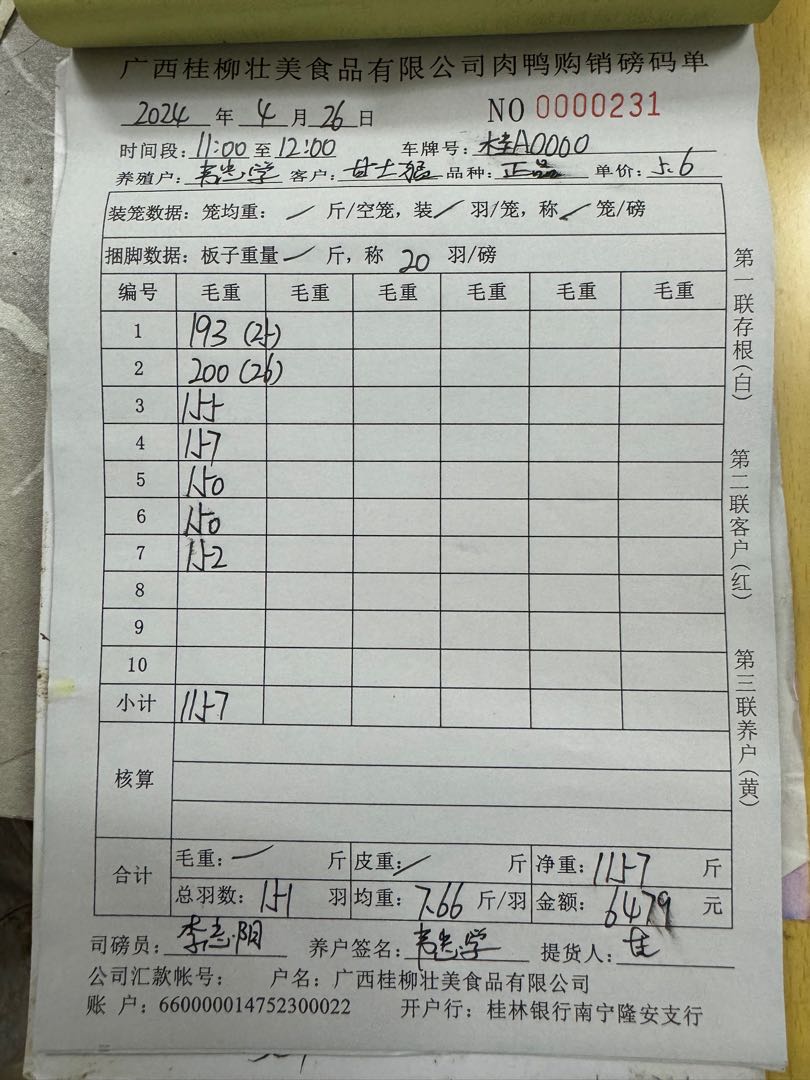 广西桂柳壮美食品有限公司肉鸭购销磅码单
2024 年 4 月 26 日 NO 0000231
时间段: 11:00 至 12:00 车牌号: 桂A0000
养殖户: 韦忠学 客户: 甘士强 品种: 正品 单价: 5.6
装笼数据: 笼均重: / 斤/空笼, 装 / 羽/笼, 称 / 笼/磅
捆脚数据: 板子重量 / 斤, 称 20 羽/磅
编号 毛重 毛重 毛重 毛重 毛重 毛重
1 193 (25)
2 200 (26)
3 155
4 157
5 150
6 150
7 152
8
9
10
小计 1157
核算
合计 毛重: / 斤 皮重: / 斤 净重: 1157 斤
总羽数: 151 羽 均重: 7.66 斤/羽 金额: 6479 元
司磅员: 李志阳 养户签名: 韦忠学 提货人: 甘
公司汇款帐号: 户名: 广西桂柳壮美食品有限公司
账 户: 660000014752300022 开户行: 桂林银行南宁隆安支行
第一联存根(白)
第二联客户(红)
第三联养户(黄)